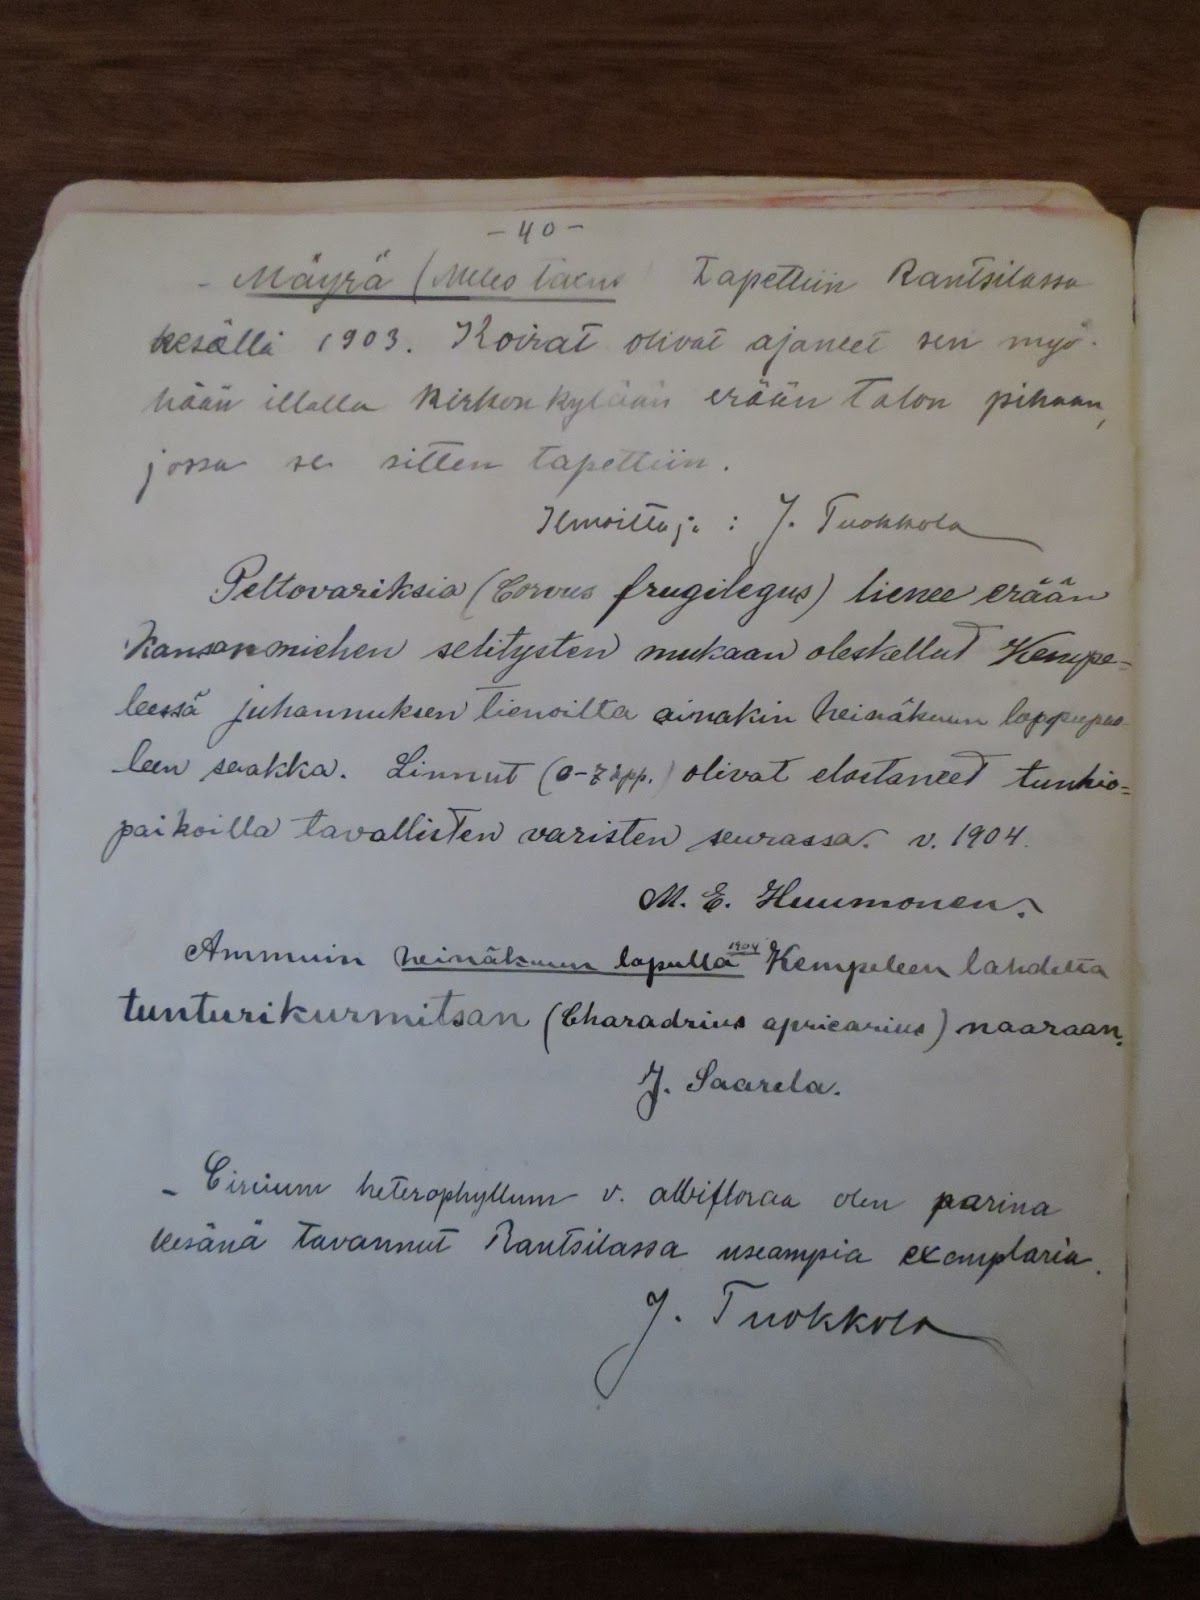 - 40 -
- Mäyrä (Meles taxus) Tapettiin Rantsilassa
kesällä 1903. Koirat olivat ajaneet sen myö-
hään illalla kirkonkylään erään talon pihaan,
jossa se sitten tapettiin.
Ilmoittaja : J. Tuokkola
Peltovariksia (Corvus frugilegus) lienee erään
kansanmiehen selitysten mukaan oleskellut Kempe=
leessä juhannuksen tienoilta ainakin heinäkuun loppupuo-
leen saakka. Linnut olivat elostaneet tunkio=
paikoilla tavallisten varisten seurassa. v. 1904.
M. E. Huumonen.
Ammuin heinäkuun lopulla 1904 Kempeleen lahdelta
tunturikurmitsan (Charadrius apricarius) naaraan.
J. Saarela.
- Cirsium heterophyllum v. albifloraa olen parina
kesänä tavannut Rantsilassa useampia exemplaria.
J. Tuokkola